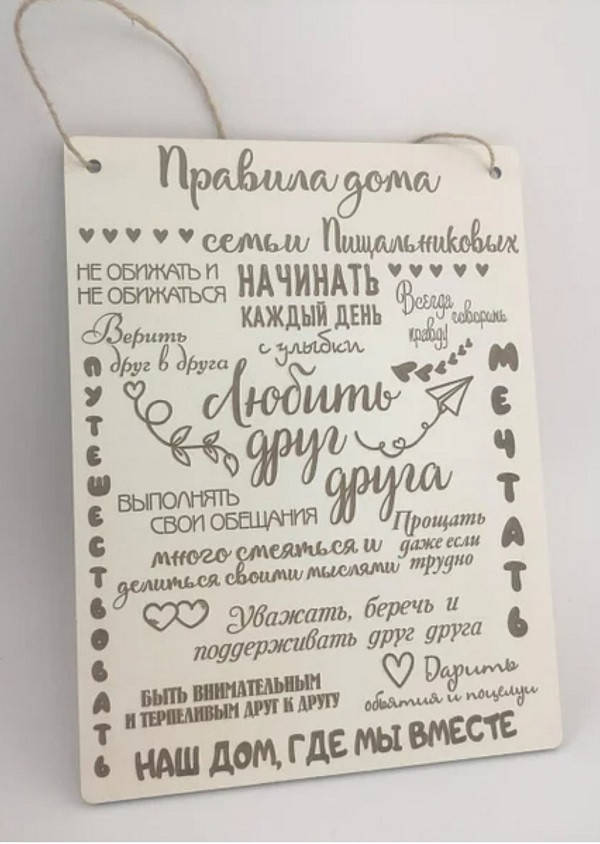 Правила дома
семьи Пищальниковых
НЕ ОБИЖАТЬ И
НЕ ОБИЖАТЬСЯ
НАЧИНАТЬ
КАЖДЫЙ ДЕНЬ
с улыбки
Всегда
говорить
правду
Верить
друг в друга
ПУТЕШЕСТВОВАТЬ
Любить
друг
друга
МЕЧТАТЬ
ВЫПОЛНЯТЬ
СВОИ ОБЕЩАНИЯ
Прощать
даже если
трудно
много смеяться и
делиться своими мыслями
Уважать, беречь и
поддерживать друг друга
БЫТЬ ВНИМАТЕЛЬНЫМ
И ТЕРПЕЛИВЫМ ДРУГ К ДРУГУ
Дарить
объятия и поцелуи
НАШ ДОМ, ГДЕ МЫ ВМЕСТЕ